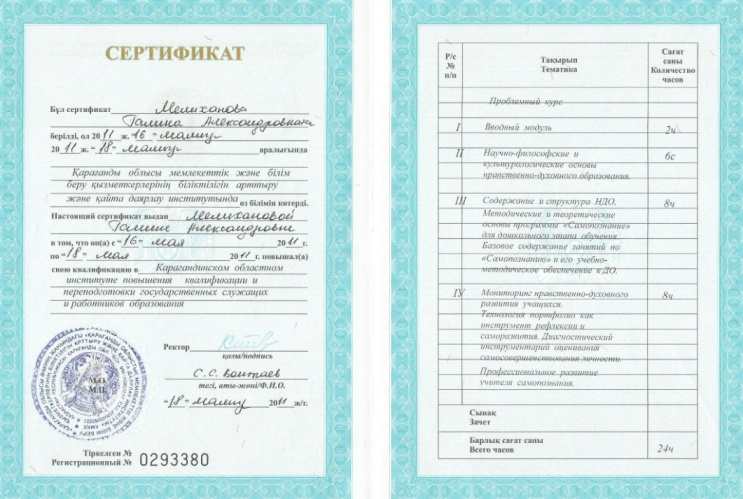 СЕРТИФИКАТ
Бұл сертификат Мелиханова
Галина Александровнаға
берілді, ол 2011 ж. "16" мамыр
2011 ж. "18" мамыр аралығында
Қарағанды облысы мемлекеттік және білім
беру қызметкерлерінің біліктілігін арттыру
және қайта даярлау институтында өз білімін көтерді.
Настоящий сертификат выдан Мелихановой
Галине Александровне
в том, что он(а) с "16" мая 2011 г.
по "18" мая 2011 г. повышал(а)
свою квалификацию в Карагандинском областном
институте повышения квалификации и
переподготовки государственных служащих
и работников образования
Ректор
қолы/подпись
тегі, аты-жөні/Ф.И.О.
"18" мамыр 2011 ж/г.
М.О.
М.П.
Тіркелген №
Регистрационный № 0293380
Р/с № п/п
Тақырып Тематика
Сағат саны Количество часов
Проблемный курс
I Вводный модуль 2ч
II Научно-философские и 6с
культурологические основы
нравственно-духовного образования.
III Содержание и структура НДО. 8ч
Методические и теоретические
основы программы «Самопознание»
для дошкольного этапа обучения.
Базовое содержание занятий по
«Самопознанию» и его учебно-
методическое обеспечение в ДО.
IУ Мониторинг нравственно-духовного 8ч
развития учащихся.
Технология портфолио как
инструмент рефлексии и
саморазвития. Диагностический
инструментарий оценивания
самосовершенствования личности.
Профессиональное развитие
учителя самопознания.
Сынақ
Зачет
Барлық сағат саны
Всего часов 24ч